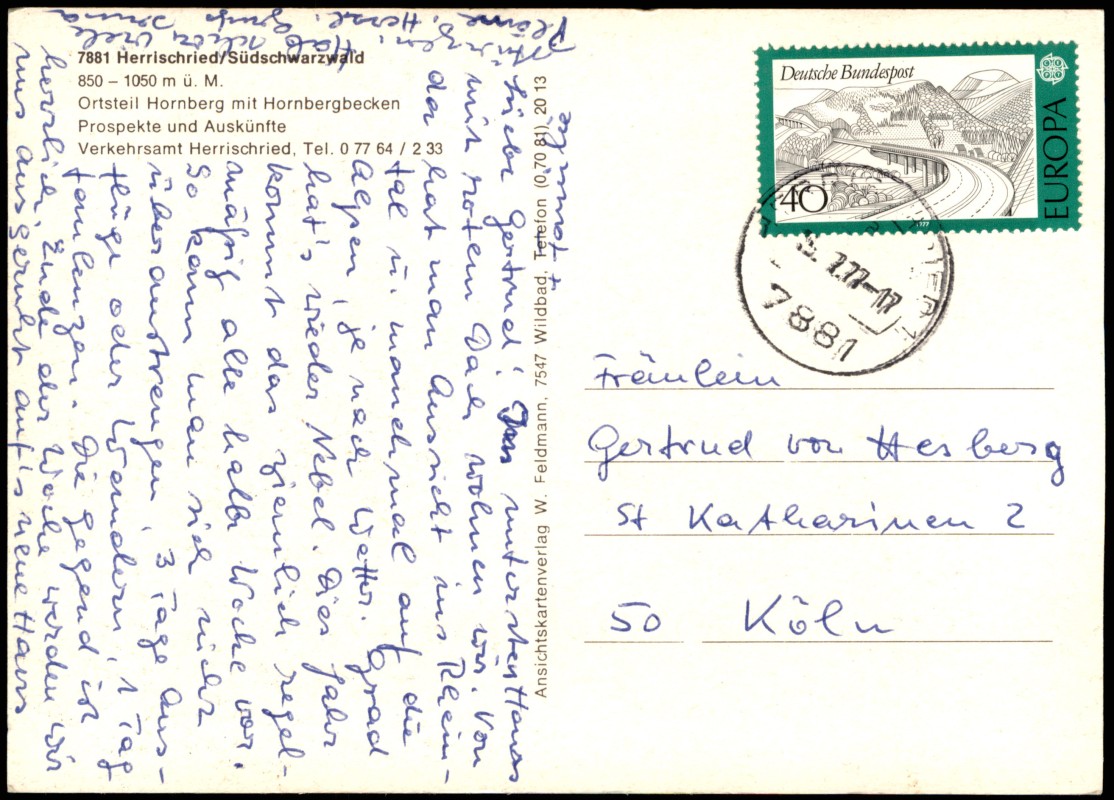 7881 Herrischried/Südschwarzwald
850 – 1050 m ü. M.
Ortsteil Hornberg mit Hornbergbecken
Prospekte und Auskünfte
Verkehrsamt Herrischried, Tel. 0 77 64 / 2 33
Liebe Gertrud! Im untersten Haus
mit rotem Dach wohnen wir. Von
da hat man Aussicht ins Rhein-
tal u. manchmal auf die
Alpen, je nach Wetter. Grad
hat's wieder Nebel. Dies Jahr
kommt das ziemlich regel-
mäßig alle halbe Woche vor.
So kann man sich nicht
überanstrengen, 3 Tage Aus-
flüge oder Wandern, 1 Tag
faulenzen. Die Gegend ist
herrlich. Ende der Woche werden wir
uns ausgeruht auf's neue Haus
schon viele
Pläne
Herzl.
+ Familie
Ansichtskartenverlag W. Feldmann, 7547 Wildbad, Telefon (0 70 81) 20 13
Deutsche Bundespost
EUROPA
40
1977
7.77-17
7881
Fräulein
Gertrud von Hesberg
St Katharinen 2
50 Köln